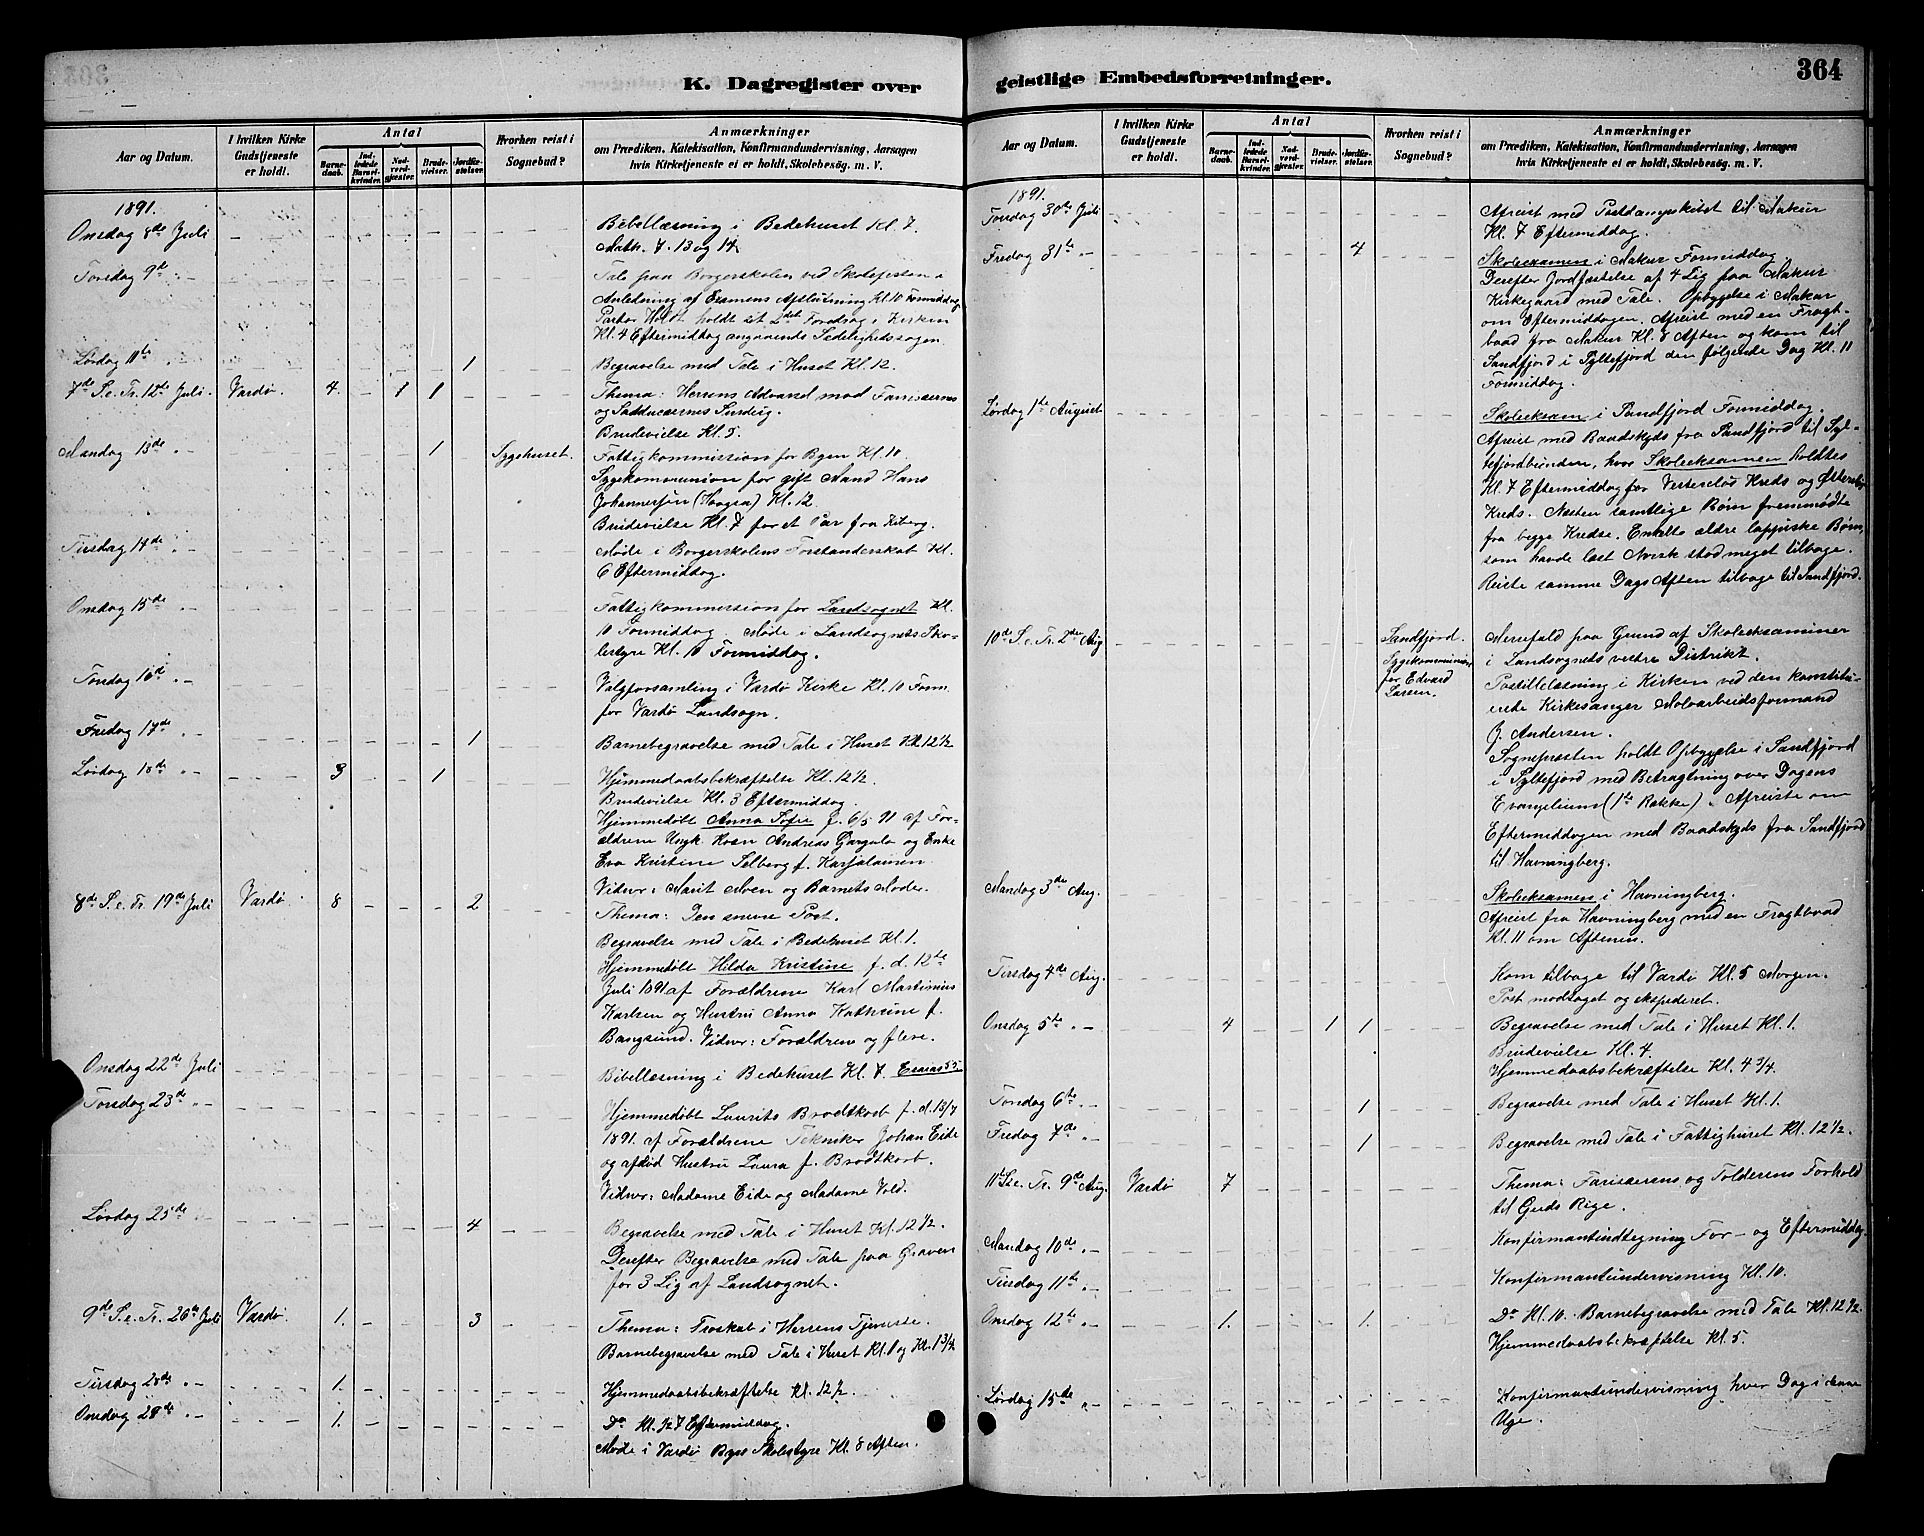 K. Dagregister over
Aar og Datum.
I hvilken Kirke Gudstjeneste er holdt.
Antal
Barnedaab.
Indledede Barselkvinder.
Nadverdgjæster.
Brudevielser.
Jordfæstelser.
Hvorhen reist i Sognebud?
Anmærkninger
om Prædiken, Katekisation, Konfirmandundervisning, Aarsagen
hvis Kirketjeneste ei er holdt, Skolebesög. m. V.
1891.
Onsdag 8de Juli
Bibellæsning i Bedehuset Kl. 7.
Math. 7. 13 og 14
Torsdag 9de
Tale paa Borgerskolen ved Skolefesten i
Anledning af Examens Afslutning Kl. 10 Formiddag
Pastor Holdt holdt sit 2det Foredrag i Kirken
Kl. 4 Eftermiddag angaaende Sedelighedssagen.
Lördag 11te
1
Begravelse med Tale i Huset Kl. 12.
7de S. e. Tr. 12te Juli. Vardø. 4. 1 1
Thema: Herrens Advarsel mod Farisæernes
og Sadducæernes Surdeig.
Brudevielse Kl. 5.
Mandag 13de
1 Sygehuset.
Fattigkommission for Byen Kl. 10.
Sygekommunion for gift Mand Hans
Johannessen (Haagen) Kl. 12
Brudevielse Kl. 7 for et Par fra Kiberg.
Tirsdag 14de
Møde i Borgerskolens Forstanderskab Kl.
6 Eftermiddag.
Onsdag 15de
Fattigkommission for Landsognet Kl.
10 Formiddag. Møde i Landsognets Sko-
lestyre Kl. 10 Formiddag.
Torsdag 16de
Valgforsamling i Vardø Kirke Kl. 10 Form.
for Vardø Landsogn.
Fredag 17de
1
Barnebegravelse med Tale i Huset Kl. 12 1/2
Lördag 18de
3 1
Hjemmedaabsbekræftelse Kl. 12 1/2.
Brudevielse Kl. 3 Eftermiddag.
Hjemmedøbt Anna Sofie f. 6/5 91 af For-
ældrene Ungk. Kvæn Andreas Gargala og Enke
Eva Kristine Selberg f. Karjalainen.
Vidner: Marit Moen og Barnets Moder.
8de S. e. Tr. 19de Juli Vardø 8 2
Thema: Den snevre Port.
Begravelse med Tale i Bedehuset Kl. 1.
Hjemmedøbt Hilda Kristine f. d. 12te
Juli 1891 af Forældrene Karl Martinius
Karlsen og Hustru Anna Kathrine f.
Bangsund. Vidner: Forældrene og flere.
Onsdag 22de Juli
Bibellæsning i Bedehuset Kl. 7. Esaias 55.
Torsdag 23de
Hjemmedøbt Laurits Brodtkorb f. d. 13/7
1891. af Forældrene Tekniker Johan Eide
og afdød Hustru Laura f. Brodtkorb.
Vidner: Madame Eide og Madame Vold.
Lördag 25de
4
Begravelse med Tale i Huset Kl. 12 1/2.
Derefter Begravelse med Tale paa Graven
for 3 Lig af Landsognet.
9de S. e. Tr. 26de Juli Vardø. 1. 3
Thema: Troskab i Herrens Tjeneste.
Barnebegravelse med Tale i Huset Kl. 1 og Kl. 1 3/4
Tirsdag 28de
1.
Hjemmedaabsbekræftelse Kl. 12 1/2.
Onsdag 29de
1.
Do Kl. 1/2 7 Eftermiddag.
Møde i Vardø Byes Skolestyre Kl. 8 Aften.
geistlige Embedsforretninger.
364
Aar og Datum.
I hvilken Kirke Gudstjeneste er holdt.
Antal
Barnedaab.
Indledede Barselkvinder.
Nadverdgjæster.
Brudevielser.
Jordfæstelser.
Hvorhen reist i Sognebud?
Anmærkninger
om Prædiken, Katekisation, Konfirmandundervisning, Aarsagen
hvis Kirketjeneste ei er holdt, Skolebesög. m. V.
1891.
Torsdag 30te Juli
Afreist med Postdampskibet til Makur
Kl. 7 Eftermiddag.
Fredag 31te
4
Skoleexamen i Makur Formiddag
Derefter Jordfæstelse af 4 Lig paa Makur
Kirkegaard med Tale. Opbyggelse i Makur
om Eftermiddagen. Afreist med en Fragt-
baad fra Makur Kl. 8 Aften og kom til
Sandfjord i Syltefjord den følgende Dag Kl. 11
Formiddag.
Lördag 1te August
Skoleeksam i Sandfjord Formiddag.
Afreist med Baadskyds fra Sandfjord til Syl-
tefjordbunden, hvor Skoleeksamen holdtes
Kl. 7 Eftermiddag for Kreds og
Kreds. Næsten samtlige Børn fremmødte
fra begge Kredse. Enkelte ældre lappiske Børn,
som havde læst Norsk stod meget tilbage.
Reiste samme Dags Aften tilbage til Sandfjord.
10de S. e. Tr. 2den Aug
Sandfjord.
Sygekommunion
for Edvard
Larsen.
Messefald paa Grund af Skoleeksaminer
i Landsognets vestre Distrikt.
Postillelæsning i Kirken ved den konstitu-
erede Kirkesanger Moloarbeidsformand
J. Andersen.
Sognepresten holdt Opbyggelse i Sandfjord
i Syltefjord med Betragtning over Dagens
Evangelium (1te Række). Afreiste om
Eftermiddagen med Baadskyds fra Sandfjord
til Havningberg.
Mandag 3de Aug.
Skoleeksamen i Havningberg.
Afreist fra Havningberg med en Fragtbaad
Kl. 11 om Aftenen.
Tirsdag 4de Aug.
Kom tilbage til Vardø Kl. 5 Morgen.
Post modtaget og ekspederet.
Onsdag 5te
4 1 1
Begravelse med Tale i Huset Kl. 1.
Brudevielse Kl. 4.
Hjemmedaabsbekræftelse Kl. 4 3/4.
Torsdag 6te
1
Begravelse med Tale i Huset Kl. 1.
Fredag 7de
1
Begravelse med Tale i Fattighuset Kl. 12 1/2.
11te S. e. Tr. 9de Aug. Vardø 7
Thema: Farisæerens og Tolderens Forhold
til Guds Rige.
Mandag 10de
Konfirmantindtegning For- og Eftermiddag.
Tirsdag 11te
Konfirmantundervisning Kl. 10.
Onsdag 12te
1. 1.
Do Kl. 10. Barnebegravelse med Tale Kl. 12 1/2.
Hjemmedaabsbekræftelse Kl. 5
Lördag 15de
Konfirmantundervisning hver Dag i denne
Uge.